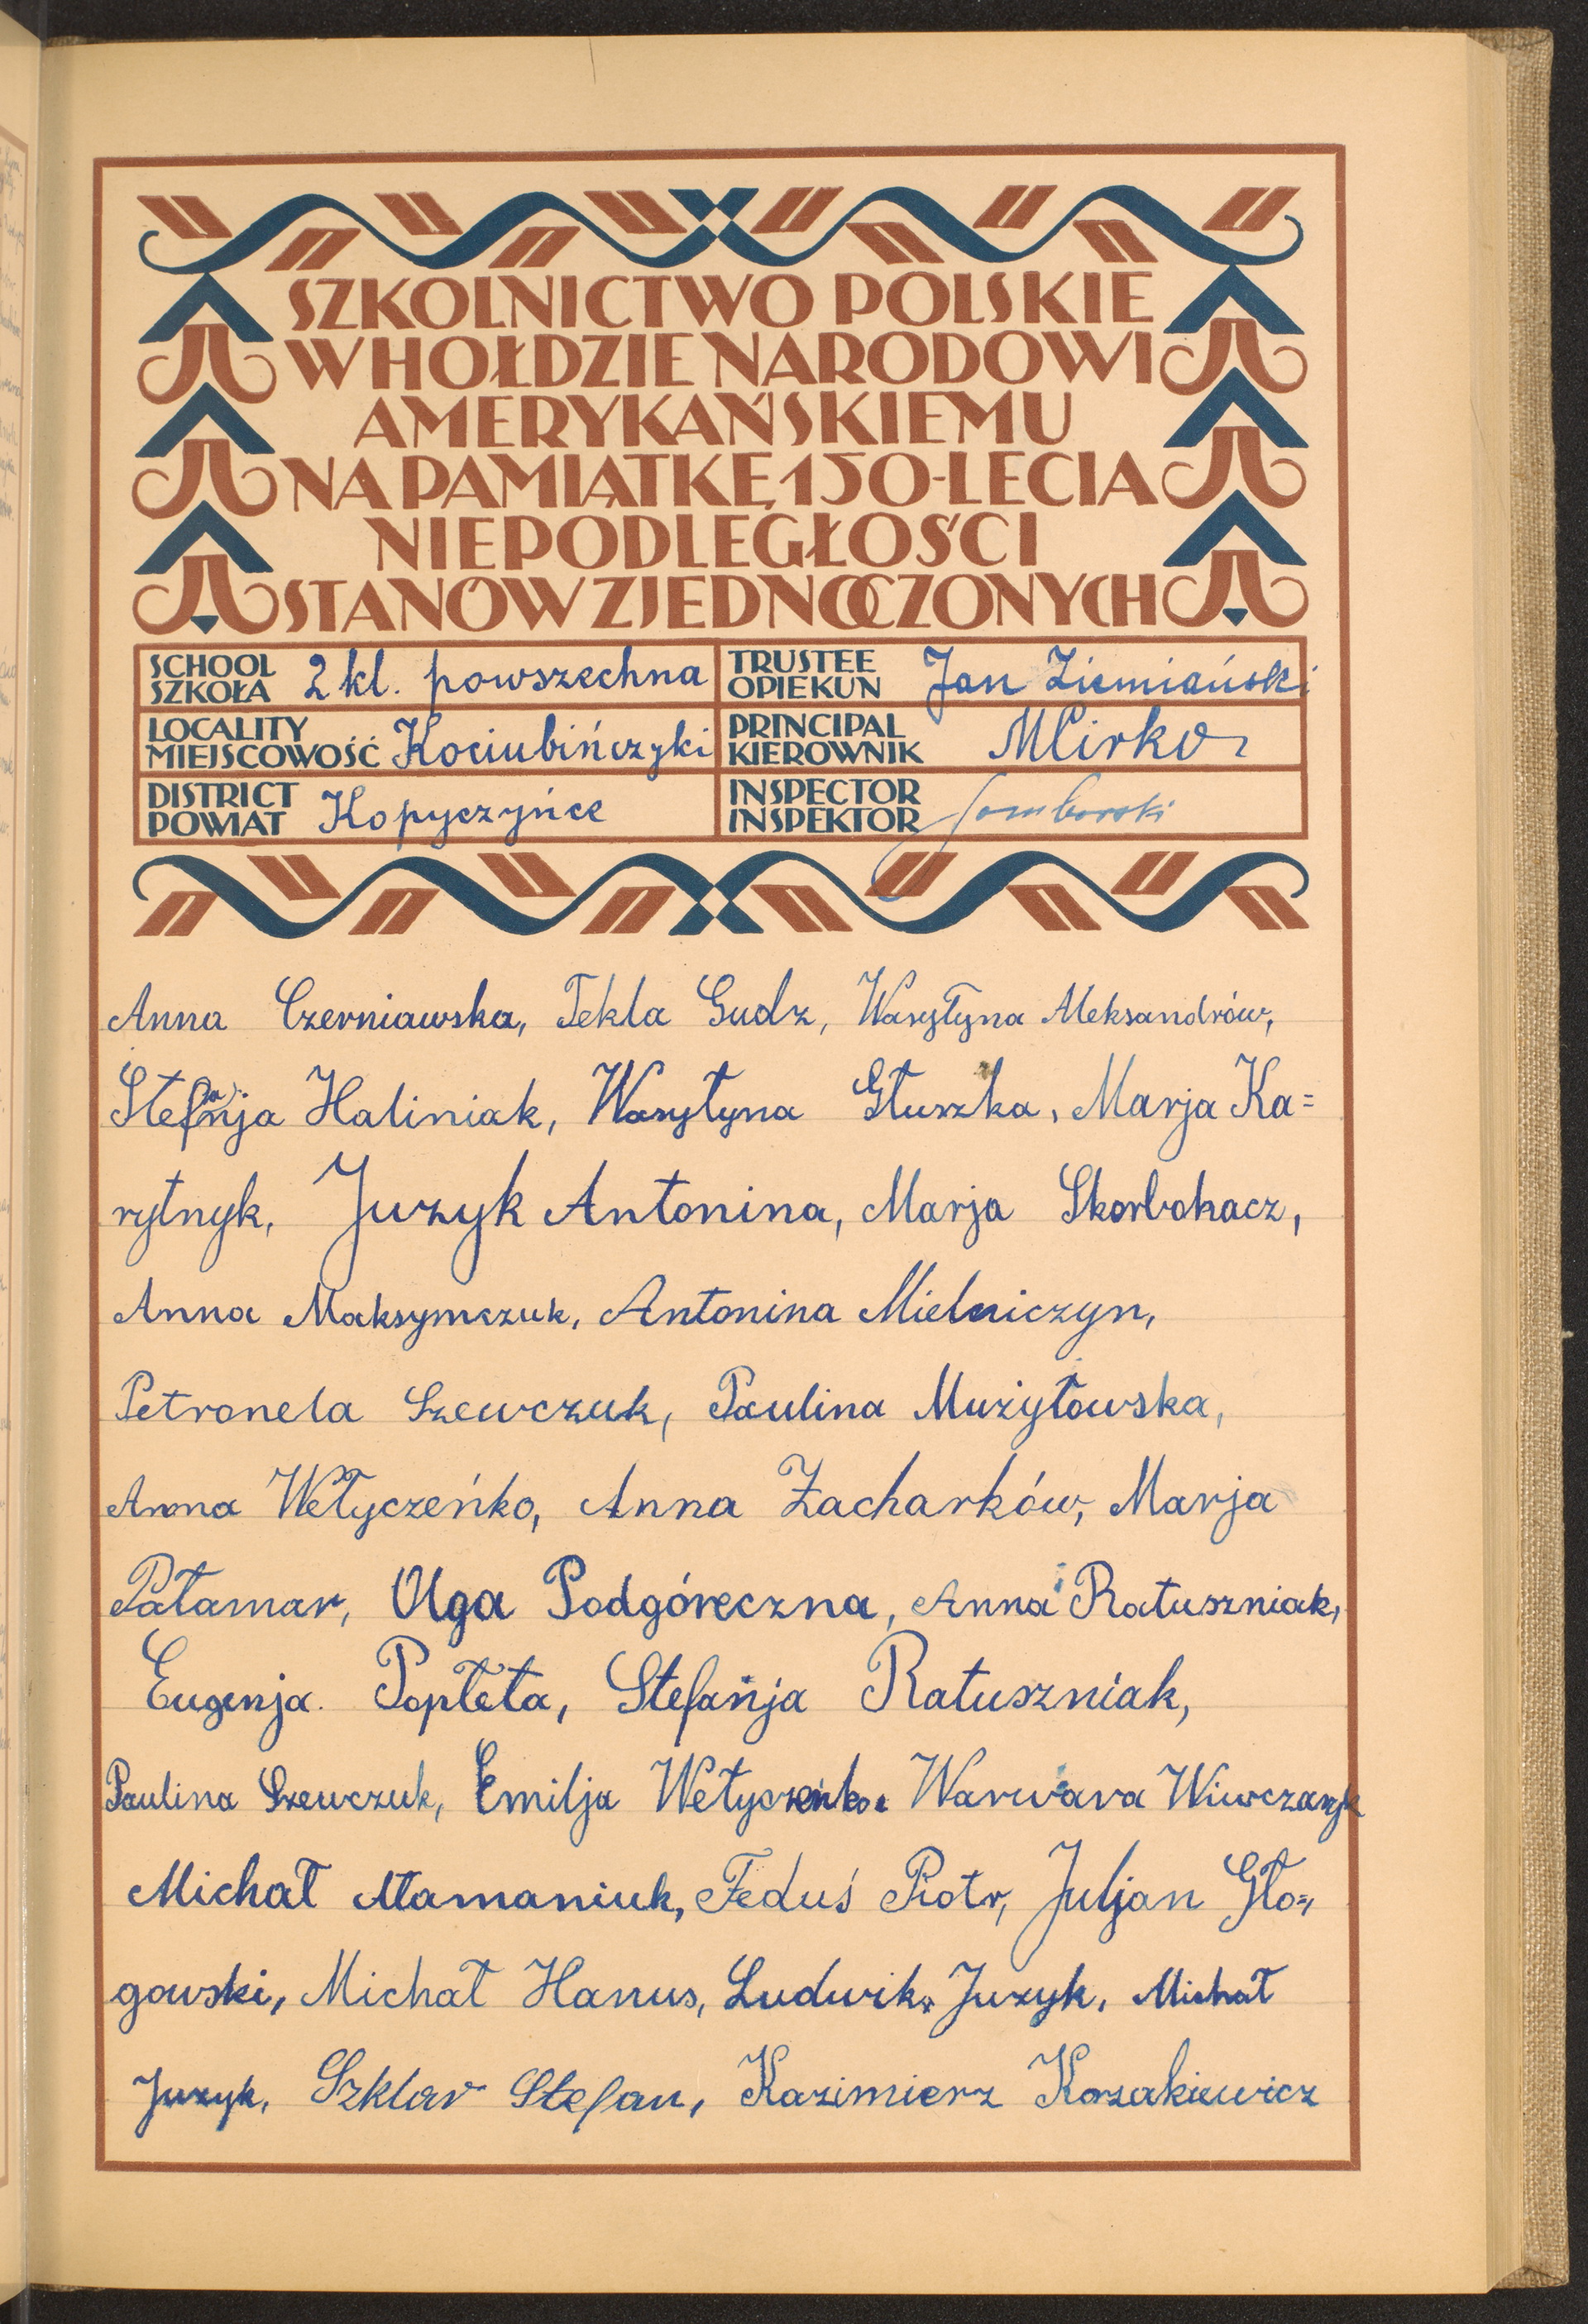 SZKOLNICTWO POLSKIE
W HOŁDZIE NARODOWI
AMERYKAŃSKIEMU
NA PAMIĄTKĘ 150-LECIA
NIEPODLEGŁOŚCI
STANÓW ZJEDNOCZONYCH
SCHOOL
SZKOŁA 2 kl. powszechna
TRUSTEE
OPIEKUN Jan Ziemiański
LOCALITY
MIEJSCOWOŚĆ Kociubińczyki
PRINCIPAL
KIEROWNIK MCirko
DISTRICT
POWIAT Kopyczyńce
INSPECTOR
INSPEKTOR
Anna Czerniawska, Tekla Gudz, Wasyłyna Aleksandrów,
Stefanja Haliniak, Wasyłyna Głuszka, Marja Ka=
rytnyk, Juzyk Antonina, Marja Skorbohacz,
Anna Maksymczuk, Antonina Mielniczyn,
Petronela Szewczuk, Paulina Mużyłowska,
Anna Wełyczeńko, Anna Zacharków, Marja
Pałamar, Olga Podgóreczna, Anna Ratuszniak,
Eugenja Popłeta, Stefanja Ratuszniak,
Paulina Szewczuk, Emilja Wełyczeńko, Warwara Wiwczaryk
Michał Ałamaniuk, Feduś Piotr, Juljan Gło=
gowski, Michał Hanus, Ludwik Juzyk, Michał
Juzyk, Szklar Stefan, Kazimierz Korzakiewicz